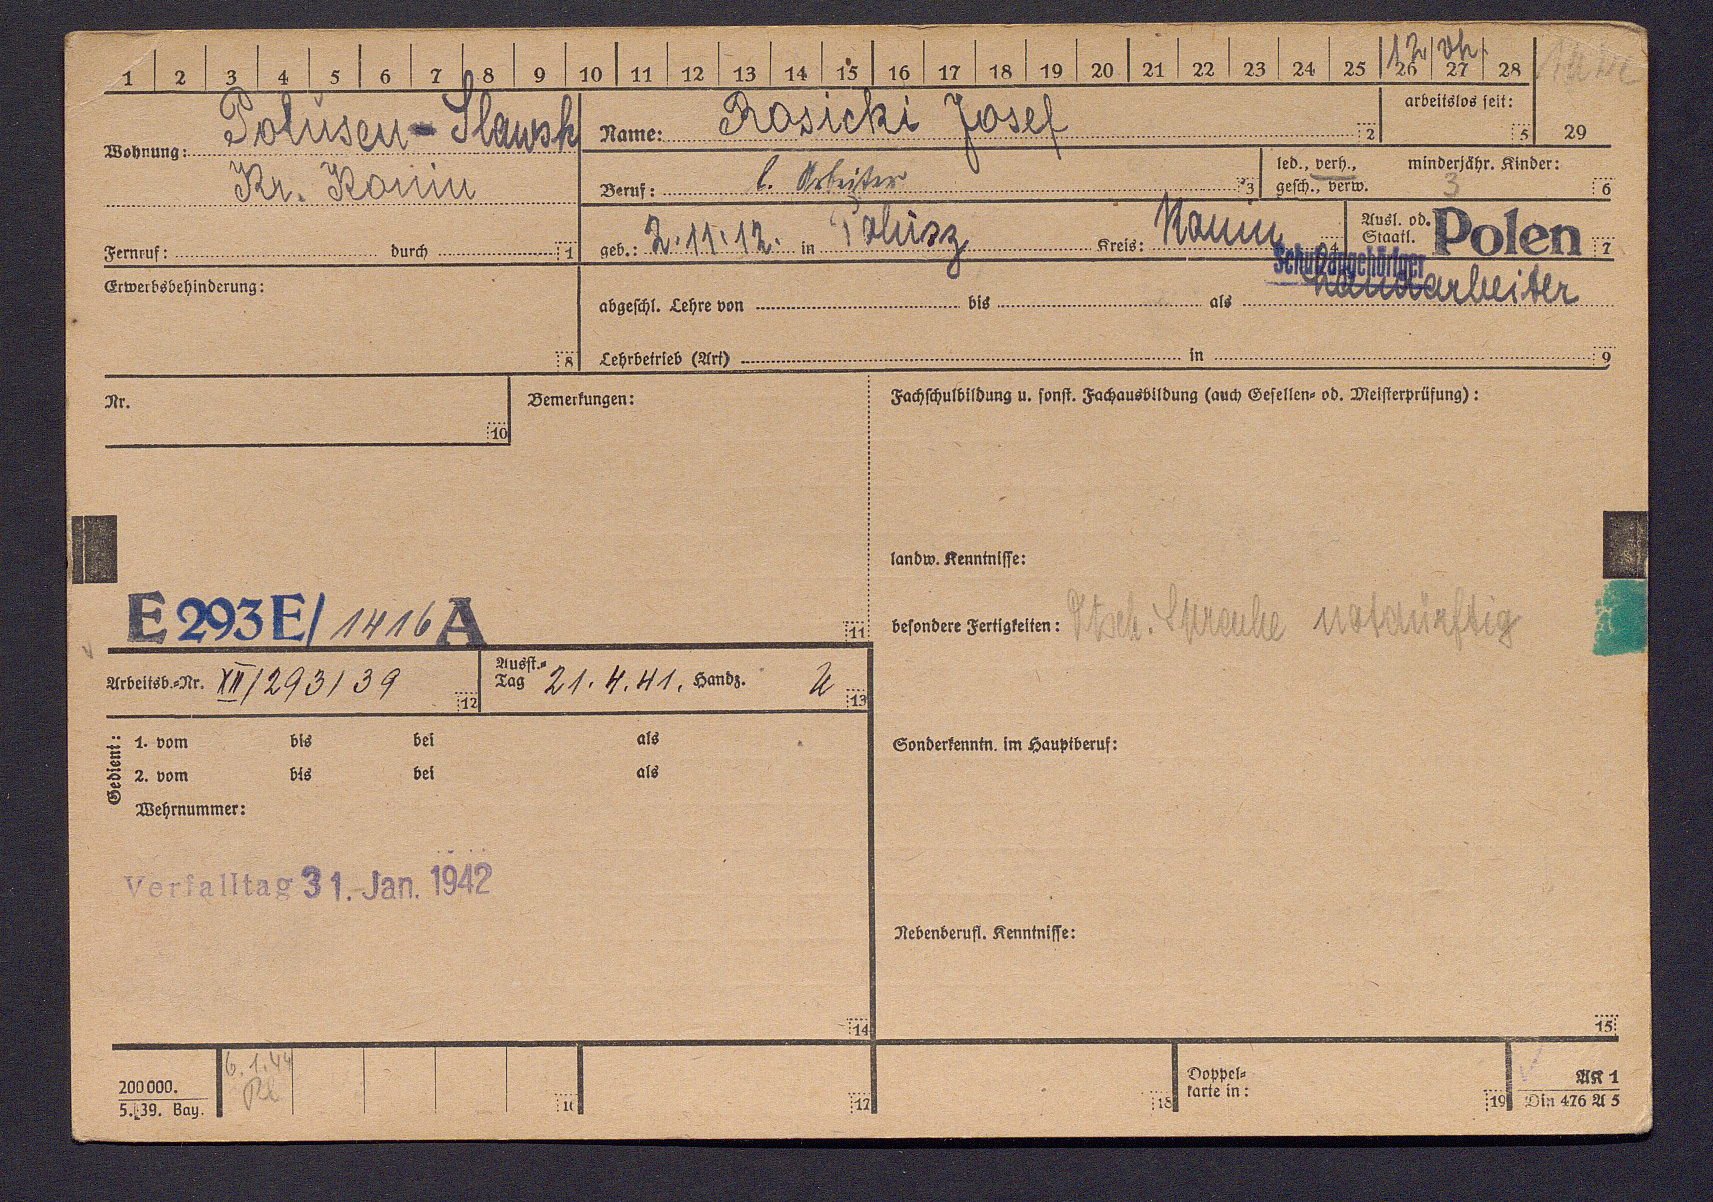 1 2 3 4 5 6 7 8 9 10 11 12 13 14 15 16 17 18 19 20 21 22 23 24 25 26 27 28
12
Wohnung: Potusen - Slawsk
Kr. Konin
Fernruf: durch 1
Name: Rosicki Josef 2
arbeitslos seit: 5
29
Beruf: l. Arbeiter 3
led., verh., gesch., verw.
minderjähr. Kinder: 3 6
geb.: 2.11.12. in Kreis: Konin 4
Ausl. od. Staatl. Polen 7
Schutzangehöriger
Erwerbsbehinderung: 8
abgeschl. Lehre von bis als Landarbeiter
Lehrbetrieb (Art) in 9
Nr. 10
Bemerkungen:
E 293 E/ 1416 A 11
Fachschulbildung u. sonst. Fachausbildung (auch Gesellen- od. Meisterprüfung):
landw. Kenntnisse:
besondere Fertigkeiten: Dtsch. Sprache notdürftig
Sonderkenntn. im Hauptberuf:
Nebenberufl. Kenntnisse:
15
Arbeitsb.-Nr. XII/293/39 12
Ausst.-Tag 21.4.41. Handz. 13
Gedient:
1. vom bis bei als
2. vom bis bei als
Wehrnummer:
Verfalltag 31. Jan. 1942
14
200000.
5. 39. Bay.
6.1.44
16
17
18
Doppel-
karte in: 19
AK 1
Din 476 A 5